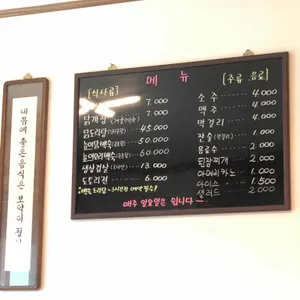 내 몸에 좋은 음식은 보약이 됩니
메 뉴
[식사류]
7.000
닭개장 7.000
닭도리탕 45.000
능이닭백숙 50.000
능이오리백숙 60.000
생삼겹살 13.000
도토리전 6.000
매주 일요일은 쉽니다
[주류 음료]
소 주 4.000
맥 주 4.000
막걸리 4.000
잔술 1.000
음료수 2.000
아메리카노 1.000
아이스 1.500
2.000